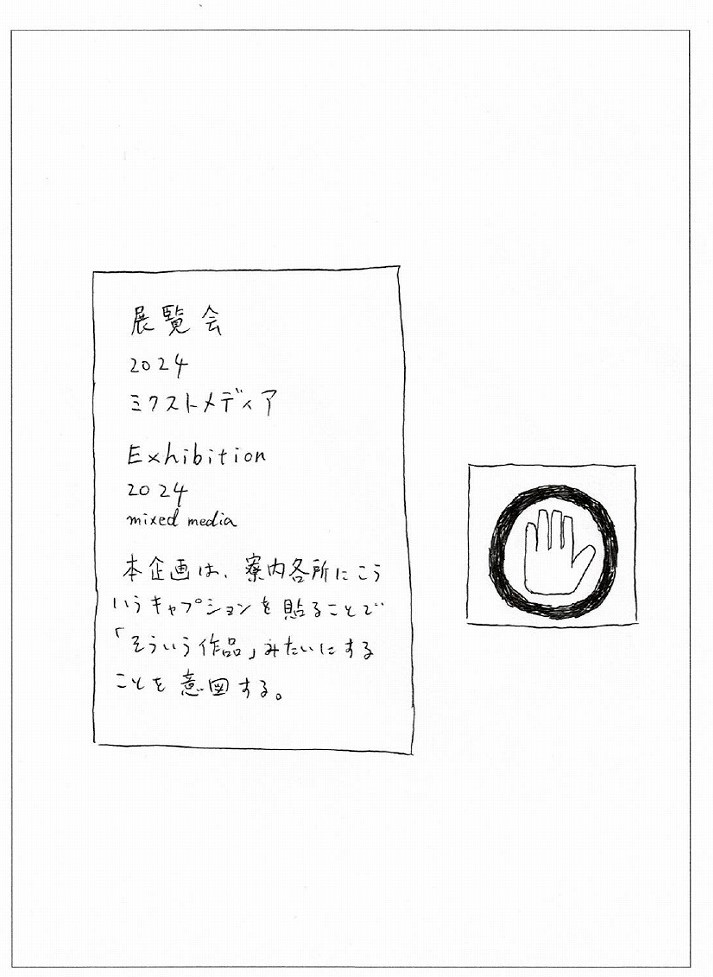 展覧会
2024
ミクストメディア
Exhibition
2024
mixed media
本企画は、寮内各所にこう
いうキャプションを貼ることで
「そういう作品」みたいにする
ことを意図する。